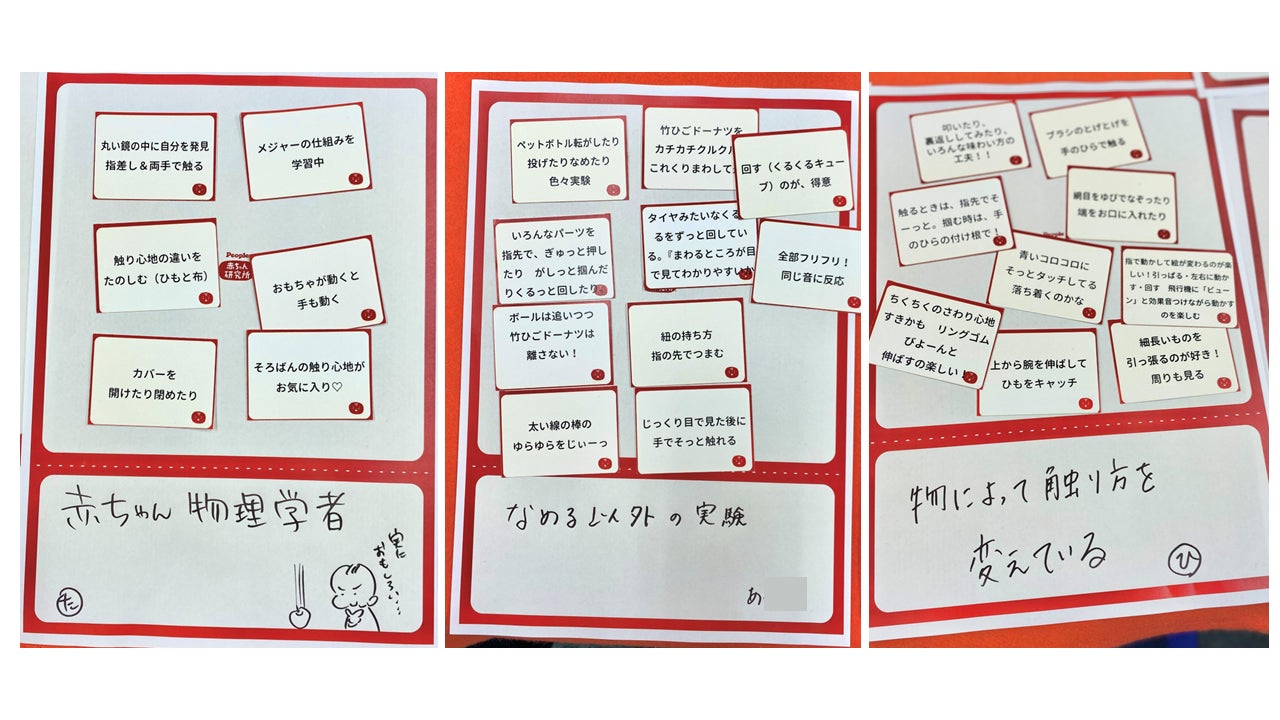 丸い鏡の中に自分を発見
指差し&両手で触る
メジャーの仕組みを
学習中
触り心地の違いを
たのしむ（ひもと布）
People
赤ちゃん
研究所
おもちゃが動くと
手も動く
カバーを
開けたり閉めたり
そろばんの触り心地が
お気に入り♡
赤ちゃん物理学者
実に
おもしろい…
た
ペットボトル転がしたり
投げたりなめたり
色々実験
竹ひごドーナツを
カチカチクルクル
これくりまわして
回す（くるくるキュー
ブ）のが、得意
いろんなパーツを
指先で、ぎゅっと押し
たり がしっと掴んだ
りくるっと回したり
タイヤみたいなくる
るをずっと回してい
る。『まわるところが目
で見てわかりやすい
全部フリフリ！
同じ音に反応
ボールは追いつつ
竹ひごドーナツは
離さない！
紐の持ち方
指の先でつまむ
太い線の棒の
ゆらゆらをじぃーっ
じっくり目で見た後に
手でそっと触れる
なめる以外の実験
あ
叩いたり、
裏返ししてみたり、
いろんな味わい方の
工夫！！
ブラシのとげとげを
手のひらで触る
触るときは、指先でそ
ーっと。掴む時は、手
のひらの付け根で！
網目をゆびでなぞったり
端をお口に入れたり
People
青いコロコロに
そっとタッチしてる
落ち着くのかな
指で動かして絵が変わるのが楽
しい！引っぱる・左右に動か
す・回す 飛行機に「ビュー
ン」と効果音つけながら動かす
のを楽しむ
ちくちくのさわり心地
すきかも リングゴム
びよーんと
伸ばすの楽しい！
上から腕を伸ばして
ひもをキャッチ
細長いものを
引っ張るのが好き！
周りも見る
物によって触り方を
変えている
ひ